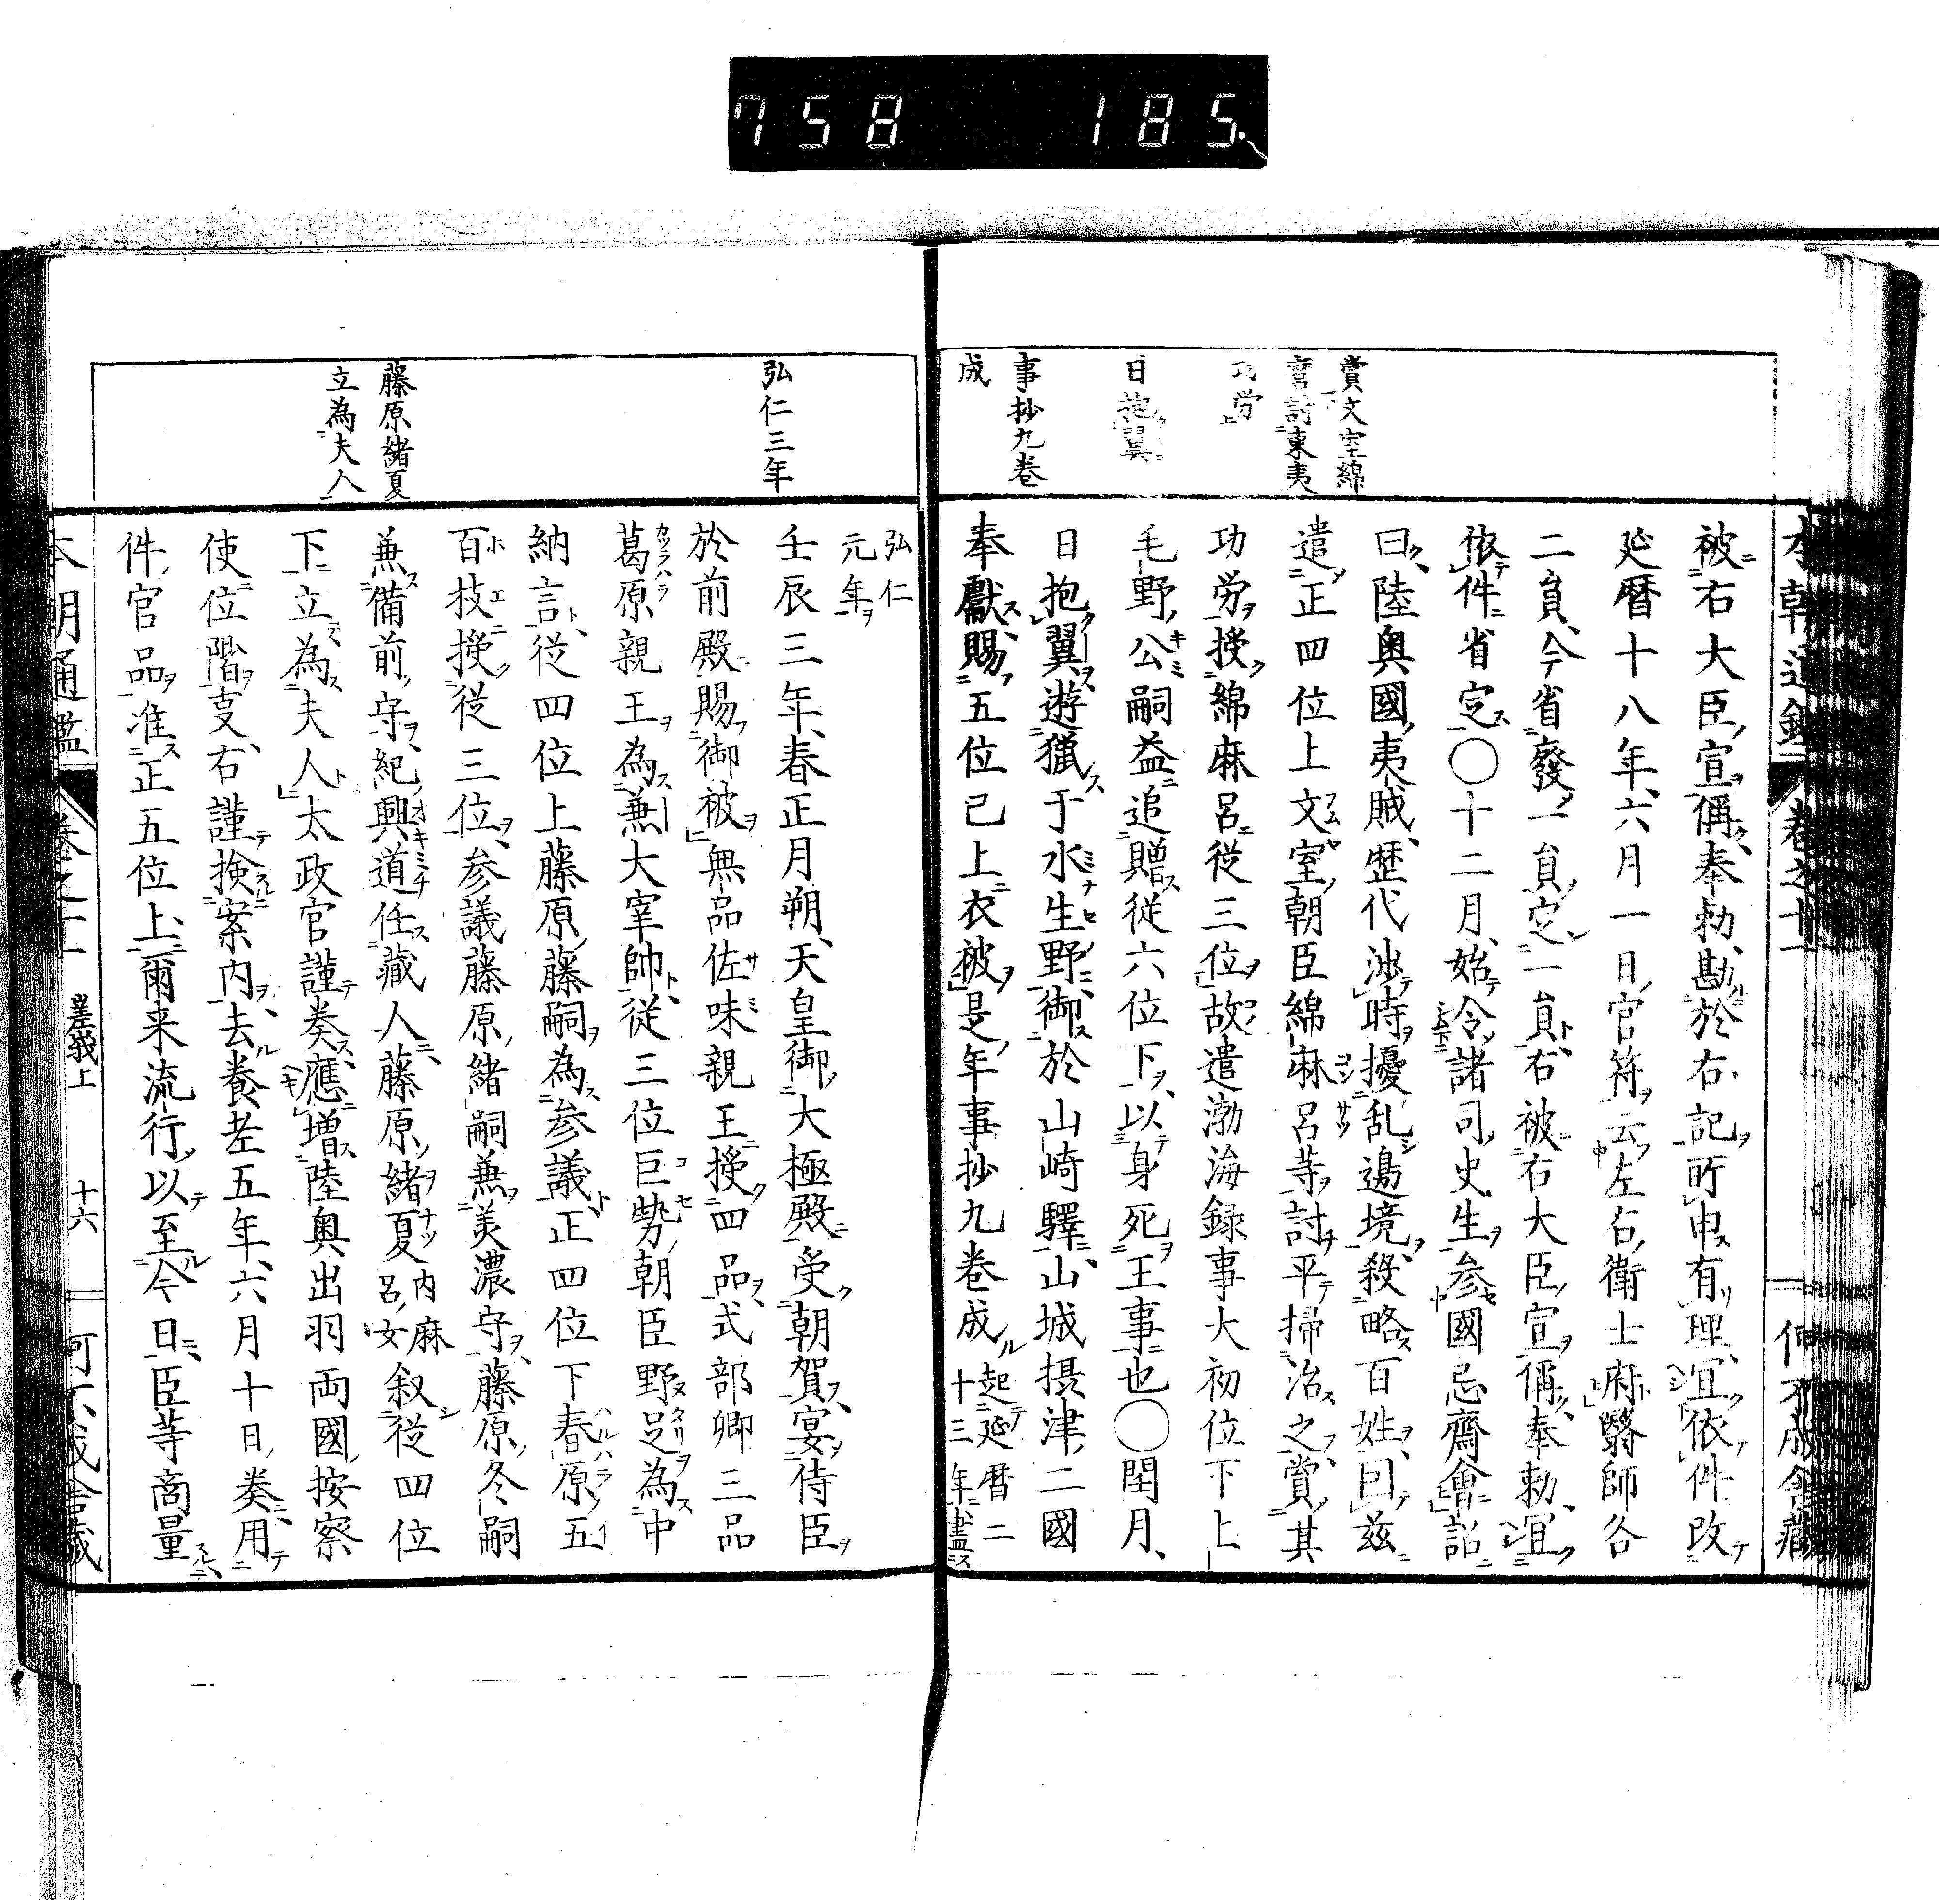 758 185
賞文室綿
麿討東夷
功労
日抱翼
事抄九巻
成
被右大臣宣偁奉勅勘於右記所申有理宜依件改
延暦十八年六月一日官符云左右衛士府醫師各
二員今省廢一員定一員右被右大臣宣偁奉勅宜
依件省定〇十二月始令諸司史生参國忌齋會詔
曰陸奥國夷賊歴代渉時擾乱邉境殺略百姓回茲
遣正四位上文室朝臣綿麻呂等討平掃治之賞其
功労授綿麻呂従三位故遣渤海録事大初位下上
毛野公嗣益追贈従六位下以身死王事也〇閏月
日抱翼遊獵于水生野御於山崎驛山城摂津二國
奉獻賜五位已上衣被是年事抄九巻成起延暦二
十三年盡
弘仁
元年
弘仁三年
藤原緒夏
立為夫人
壬辰三年春正月朔天皇御大極殿受朝賀宴侍臣
於前殿賜御被無品佐味親王授四品式部卿三品
葛原親王為兼大宰帥従三位巨勢朝臣野足為中
納言従四位上藤原藤嗣為参議正四位下春原五
百枝授従三位参議藤原緒嗣兼美濃守藤原冬嗣
兼備前守紀興道任藏人藤原緒夏内麻呂女叙従四位
下立為夫人太政官謹奏應増陸奥出羽両國按察
使位階支右謹検案内去養老五年六月十日奏用
件官品准正五位上爾来流行以至今日臣等商量
本朝通鑑 巻之十一 嵯峨上 十六